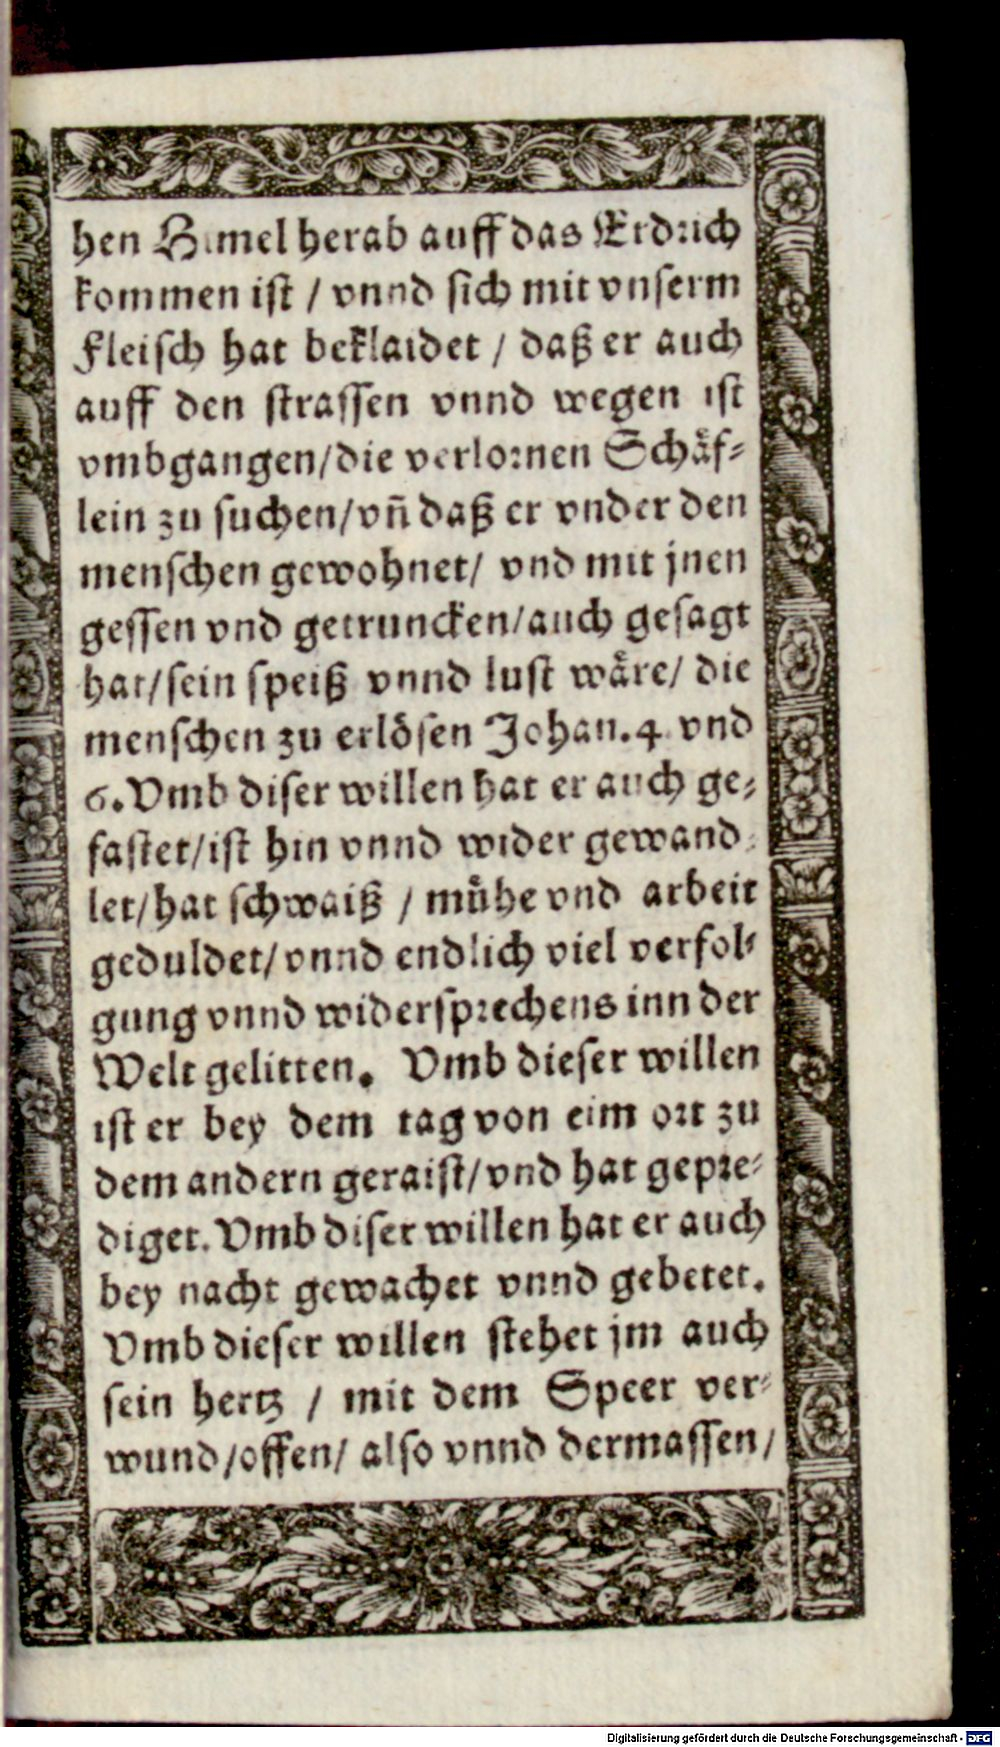 hen Himel herab auff das Erdrich
kommen ist / vnnd sich mit vnserm
Fleisch hat beklaidet / daß er auch
auff den strassen vnnd wegen ist
vmbgangen/die verlornen Schäf⸗
lein zu suchen/vn̄ daß er vnder den
menschen gewohnet/ vnd mit jnen
gessen vnd getruncken/auch gesagt
hat/sein speiß vnnd lust wäre/ die
menschen zu erlösen Johan.4. vnd
6. Vmb diser willen hat er auch ge⸗
fastet/ist hin vnnd wider gewand⸗
let/hat schwaiß / mühe vnd arbeit
geduldet/vnnd endlich viel verfol⸗
gung vnnd widersprechens inn der
Welt gelitten. Vmb dieser willen
ist er bey dem tag von eim ort zu
dem andern geraist/vnd hat gepre⸗
diget. Vmb diser willen hat er auch
bey nacht gewachet vnnd gebetet.
Vmb dieser willen stehet jm auch
sein hertz / mit dem Speer ver⸗
wund/offen/ also vnnd dermassen/
Digitalisierung gefördert durch die Deutsche Forschungsgemeinschaft - DFG